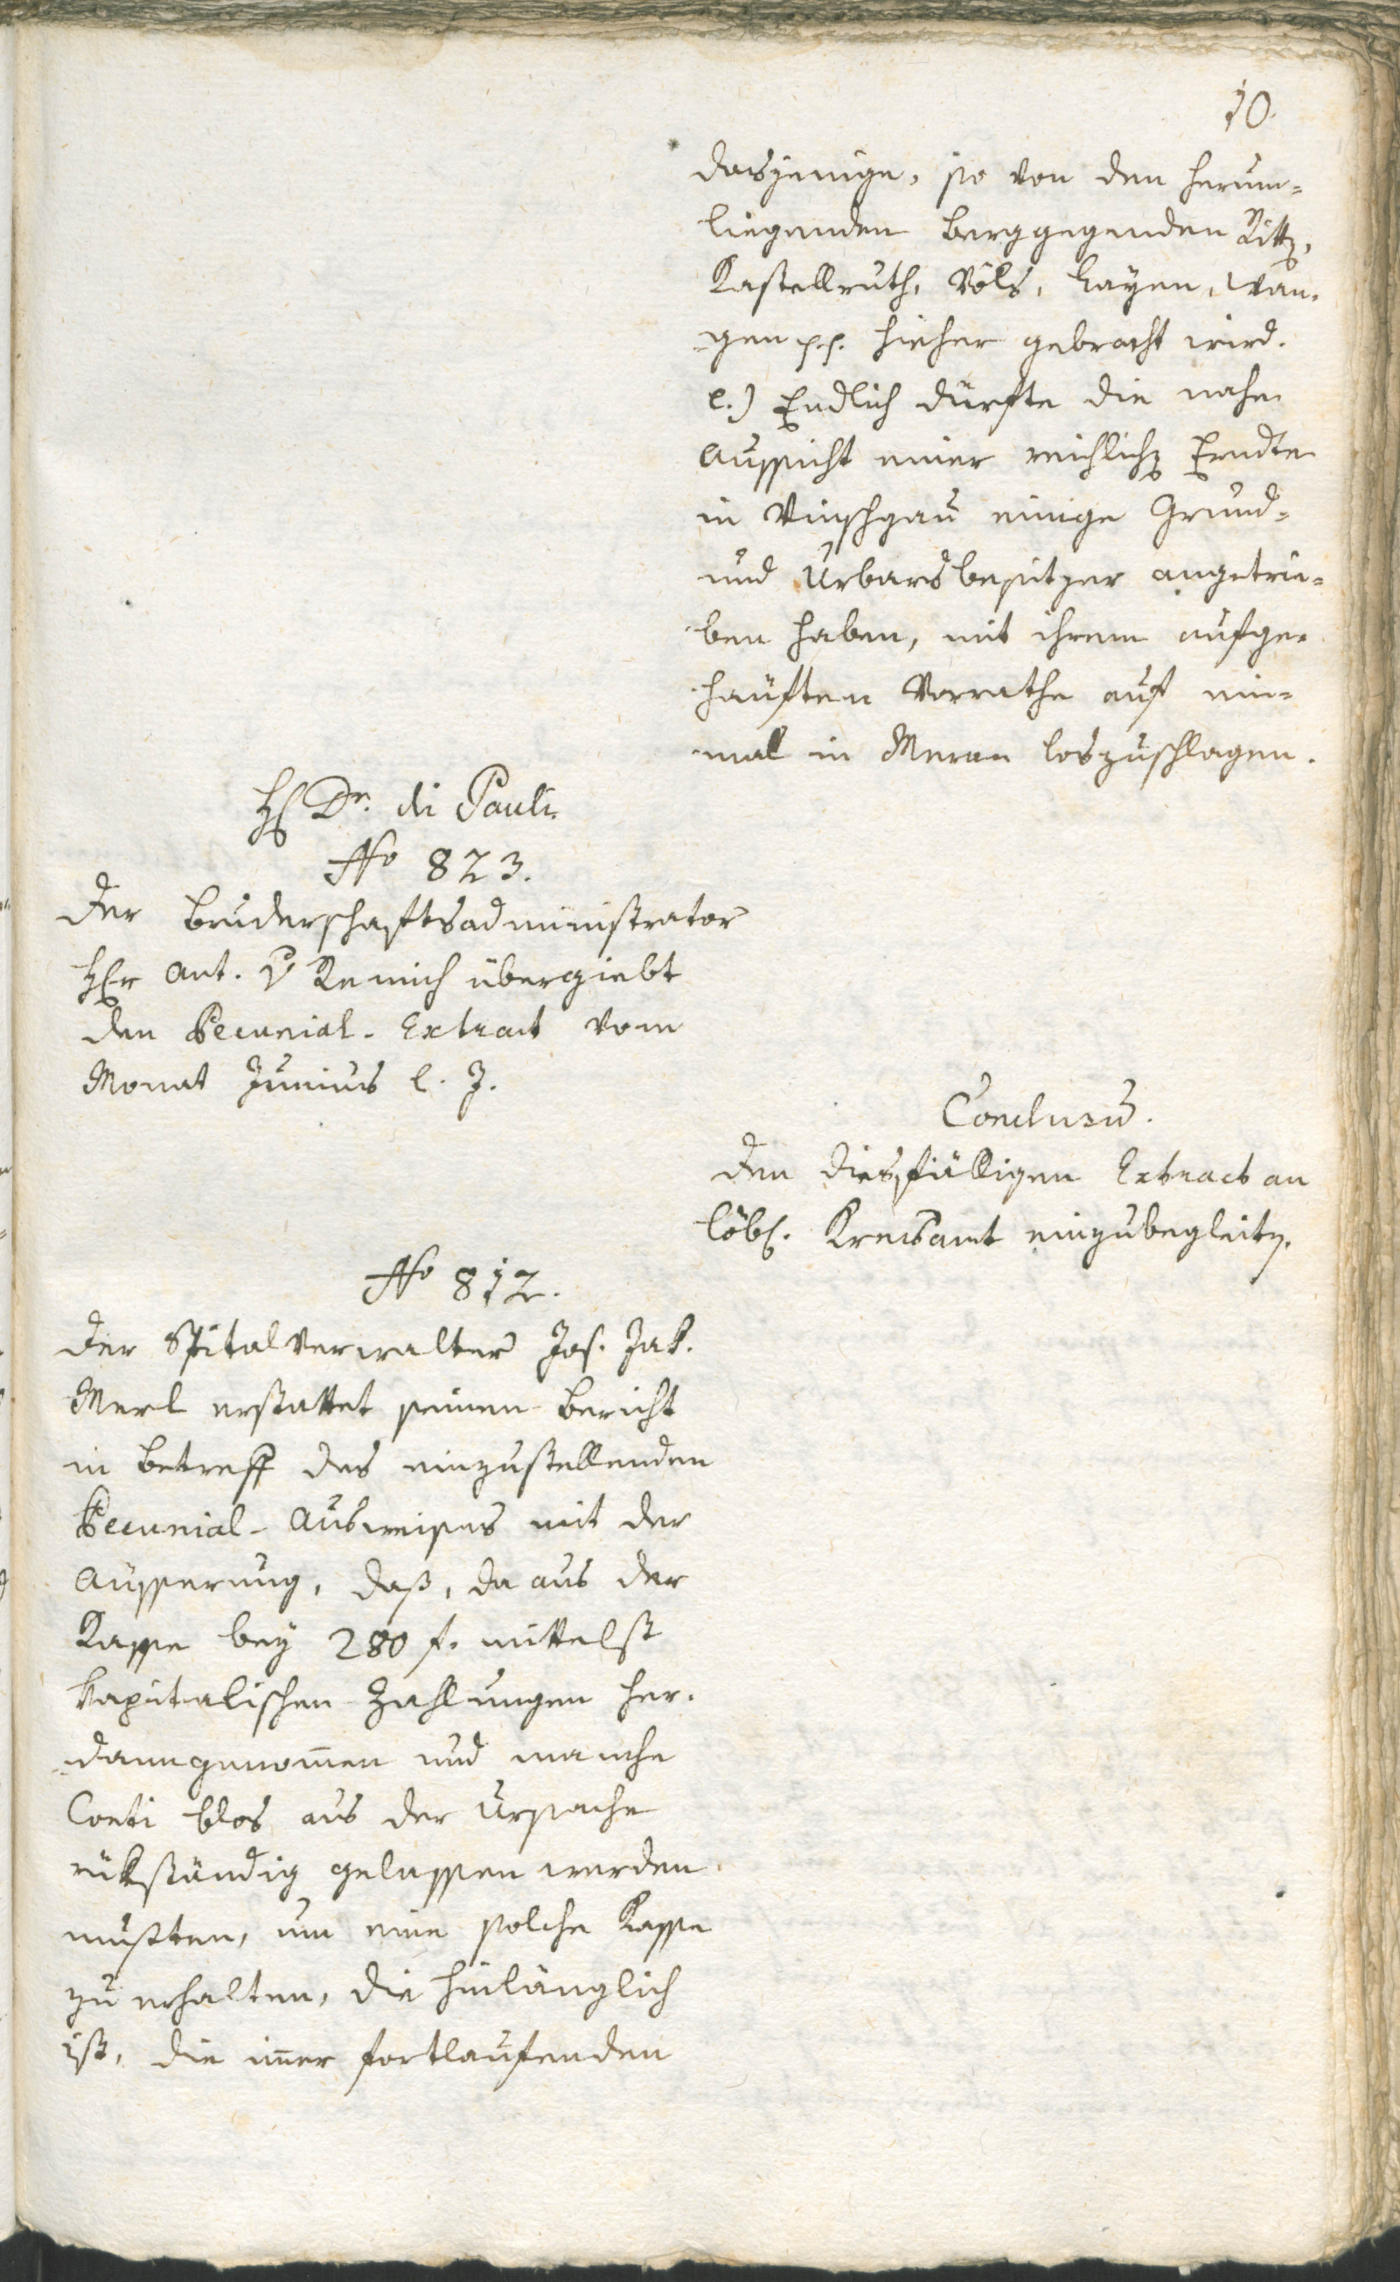 10.
dasjenige, so von den herum-
liegenden Berggegenden Ritt,
Kastellruth, Völs, Layen, Wan-
gen pp. hieher gebracht wird.
e.) Endlich dürfte die nahe
Aussicht einer reichlich Erndte
in Vinschgau einige Grund-
und Urbarsbesitzer angetrie-
ben haben, mit ihrem aufge-
häuften Vorrathe auf ein-
mal in Meran loszuschlagen.
H Dr. di Pauli
No 823.
Der Bruderschaftsadministrator
Hr Ant. v Remich übergiebt
den Pecunial-Extract vom
Monat Junius l. J.
Conclusū.
Den diesfälligen Extract an
löbl. Kreisamt einzubegleit.
No 812.
Der Spitalverwalter Jos. Jak.
Merl erstattet seinen Bericht
in Betreff des einzustellenden
Pecunial-Ausweises mit der
Äusserung, daß, da aus der
Kasse bey 280 f. mittelst
kapitalischen Zahlungen her-
danngenom̄en und manche
Conti blos aus der Ursache
rükständig gelassen werden
mußten, um eine solche Kasse
zu erhalten, die hinlänglich
ist, die im̄er fortlaufenden